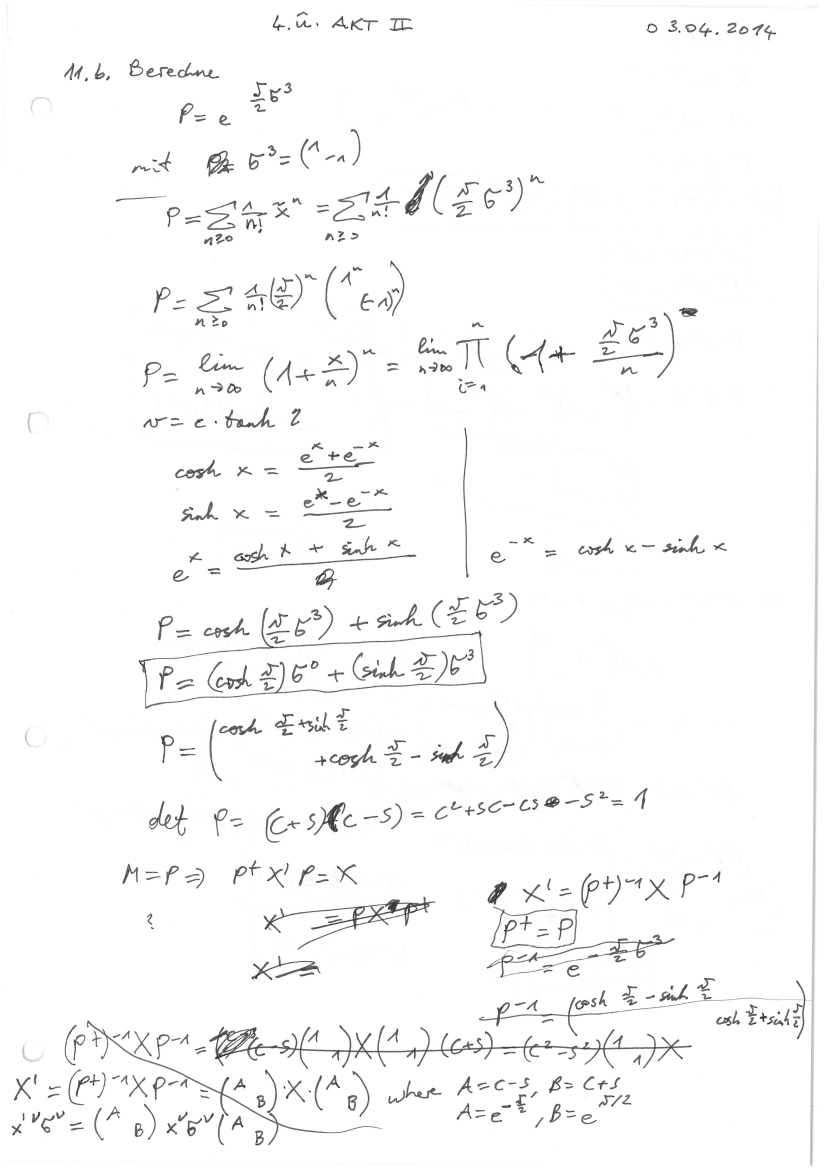 4. Ü. AKT II 03.04.2014
11.b. Berechne
P = e^{\frac{v}{2} σ^3}
mit σ^3 = (1 -1)
P = Σ_{n≥0} \frac{1}{n!} x̃^n = Σ_{n≥0} \frac{1}{n!} (\frac{v}{2} σ^3)^n
P = Σ_{n≥0} \frac{1}{n!} (\frac{v}{2})^n (1^n (-1)^n)
P = lim_{n→∞} (1 + \frac{x}{n})^n = lim_{n→∞} ∏_{i=1}^{n} (1 + \frac{\frac{v}{2} σ^3}{n})
v = c · tanh 2
cosh x = \frac{e^x + e^{-x}}{2}
sinh x = \frac{e^x - e^{-x}}{2}
e^x = cosh x + sinh x e^{-x} = cosh x - sinh x
P = cosh (\frac{v}{2} σ^3) + sinh (\frac{v}{2} σ^3)
P = (cosh \frac{v}{2}) σ^0 + (sinh \frac{v}{2}) σ^3
P = (cosh \frac{v}{2} + sinh \frac{v}{2}
+cosh \frac{v}{2} - sinh \frac{v}{2})
det P = (c+s)(c-s) = c^2 + sc - cs - s^2 = 1
M = P ⇒ P^+ X' P = X
X' = (P^+)^{-1} X P^{-1}
? X' = P X P^+
P^+ = P
X' =
P^{-1} = e^{-\frac{v}{2} σ^3}
P^{-1} = (cosh \frac{v}{2} - sinh \frac{v}{2}
cosh \frac{v}{2} + sinh \frac{v}{2})
(P^+)^{-1} X P^{-1} = (c-s)(1 1) X (1 1) (c+s) = (c^2 - s^2)(1 1) X
X' = (P^+)^{-1} X P^{-1} = (A B) · X · (A B) where A = c-s, B = c+s
x'^ν σ^ν = (A B) x^ν σ^ν (A B) A = e^{-\frac{v}{2}}, B = e^{v/2}